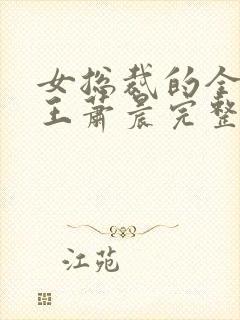 女总裁的全
王萧晨完整
江苑